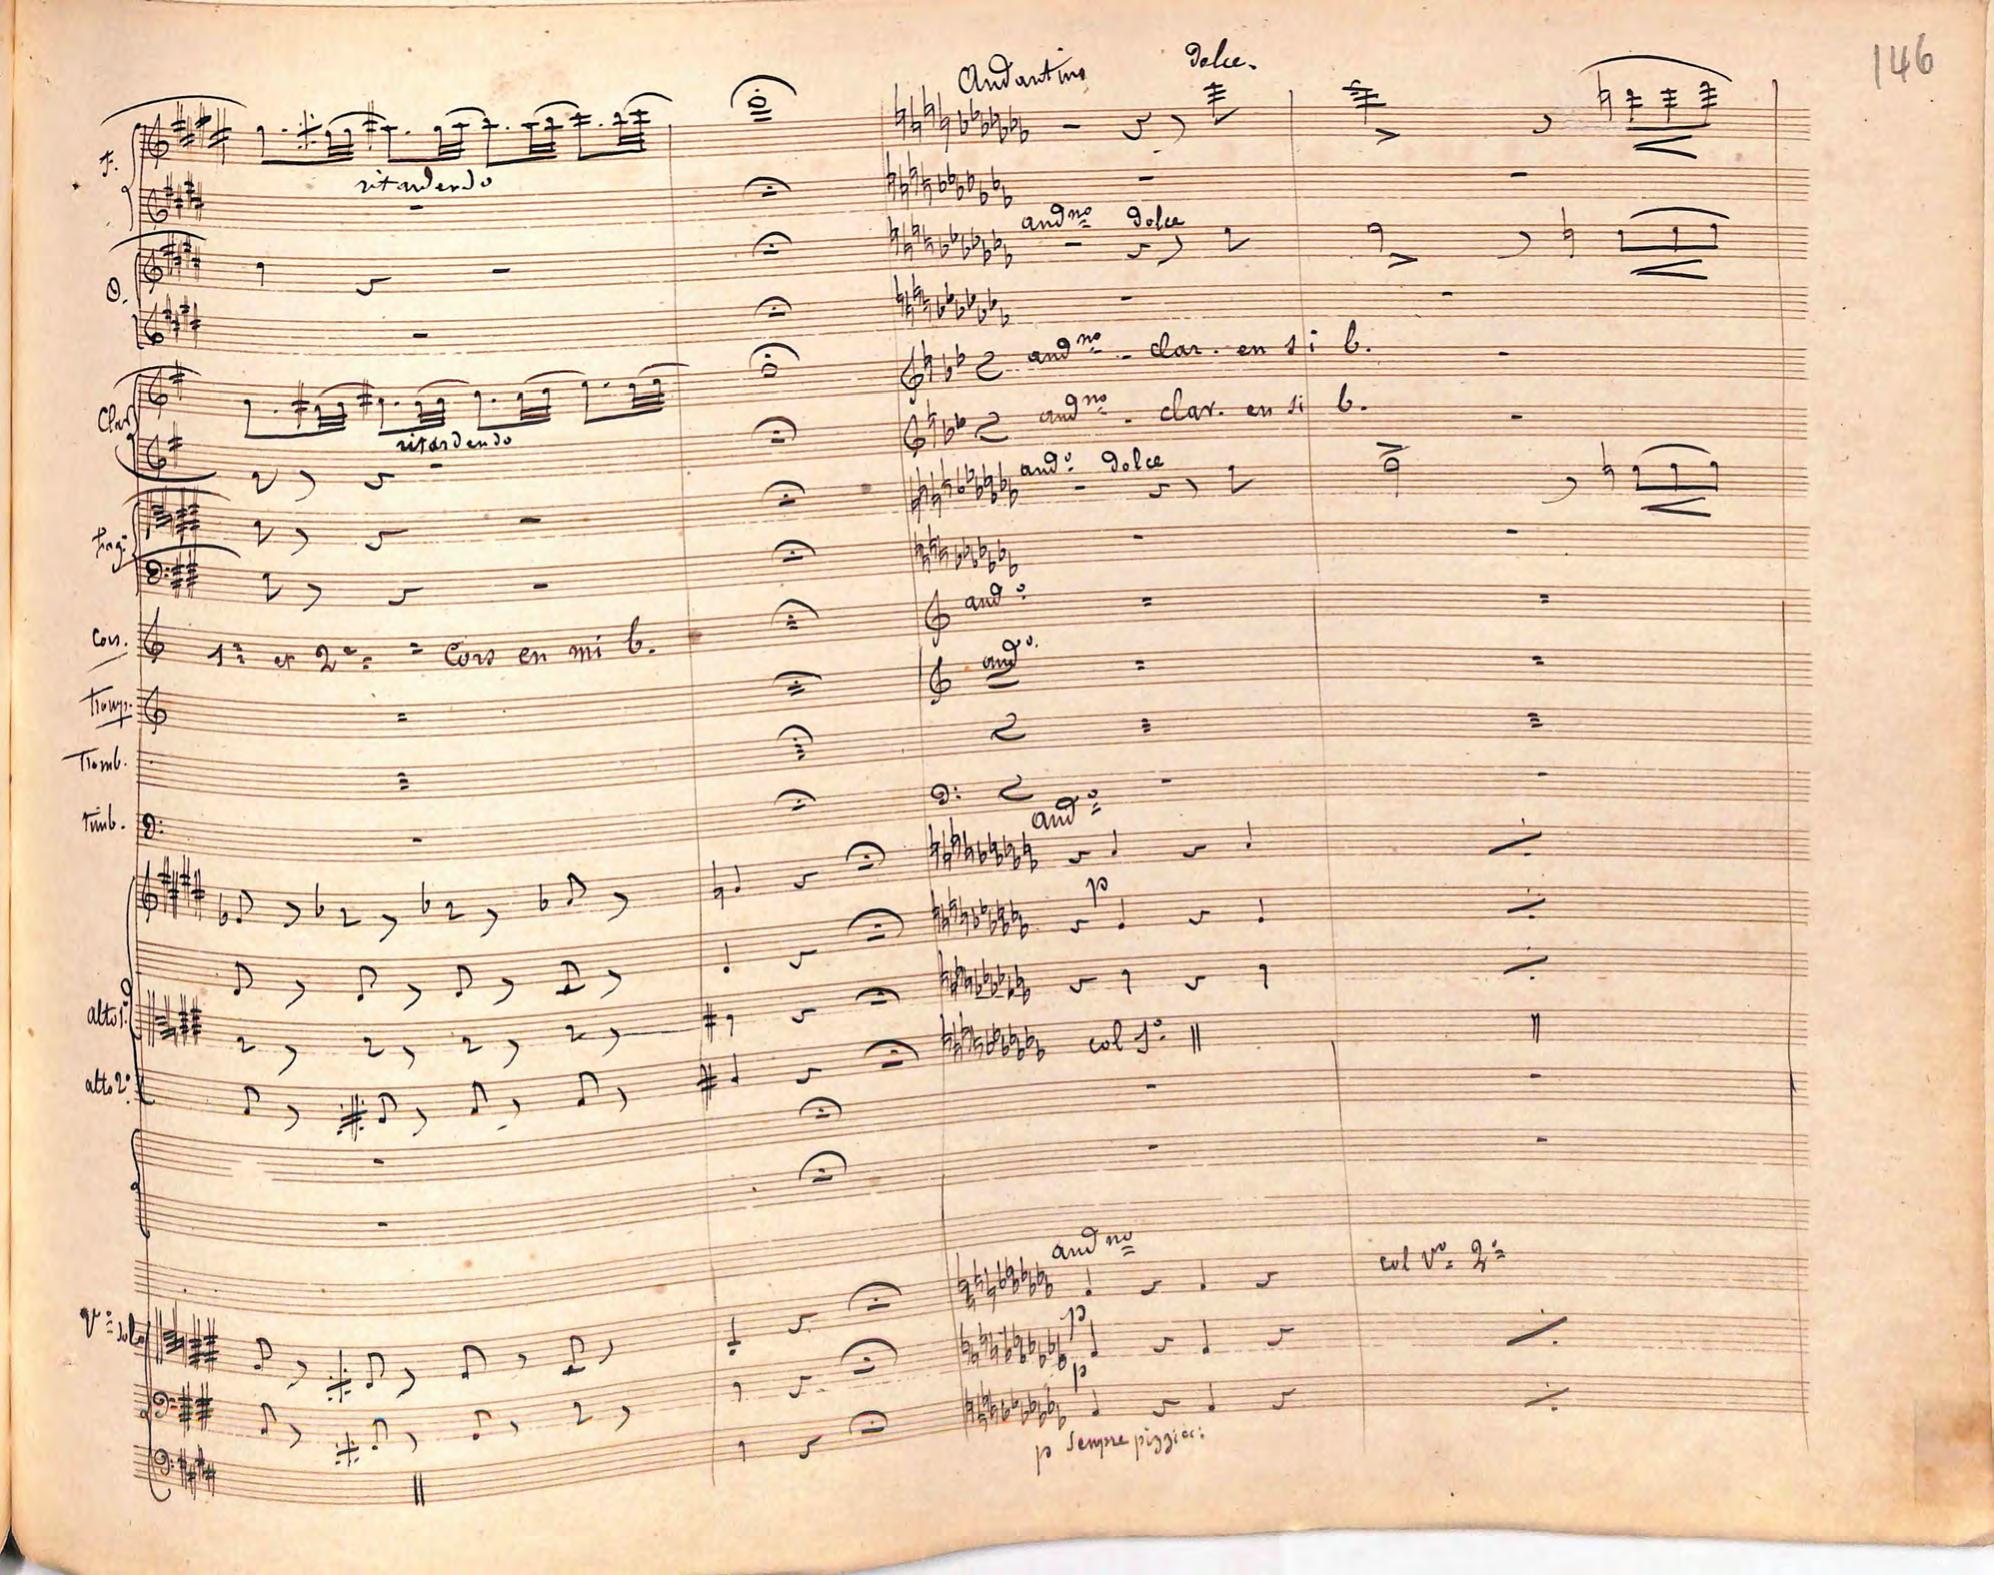 146
Andantino dolce.
f.
ritardendo
andno dolce
O.
andno - clar. en si b.
Clar
andno - clar. en si b.
ritardendo
and.o dolce
fag:
and.o
Cors. 1o et 2o = Cors en mi b.
and.o
Tromp.
Tromb.
timb.
and.o
p
alto 1o
col 1o
alto 2o
andno
col Vo 2o
p
p
p sempre pizzicc: